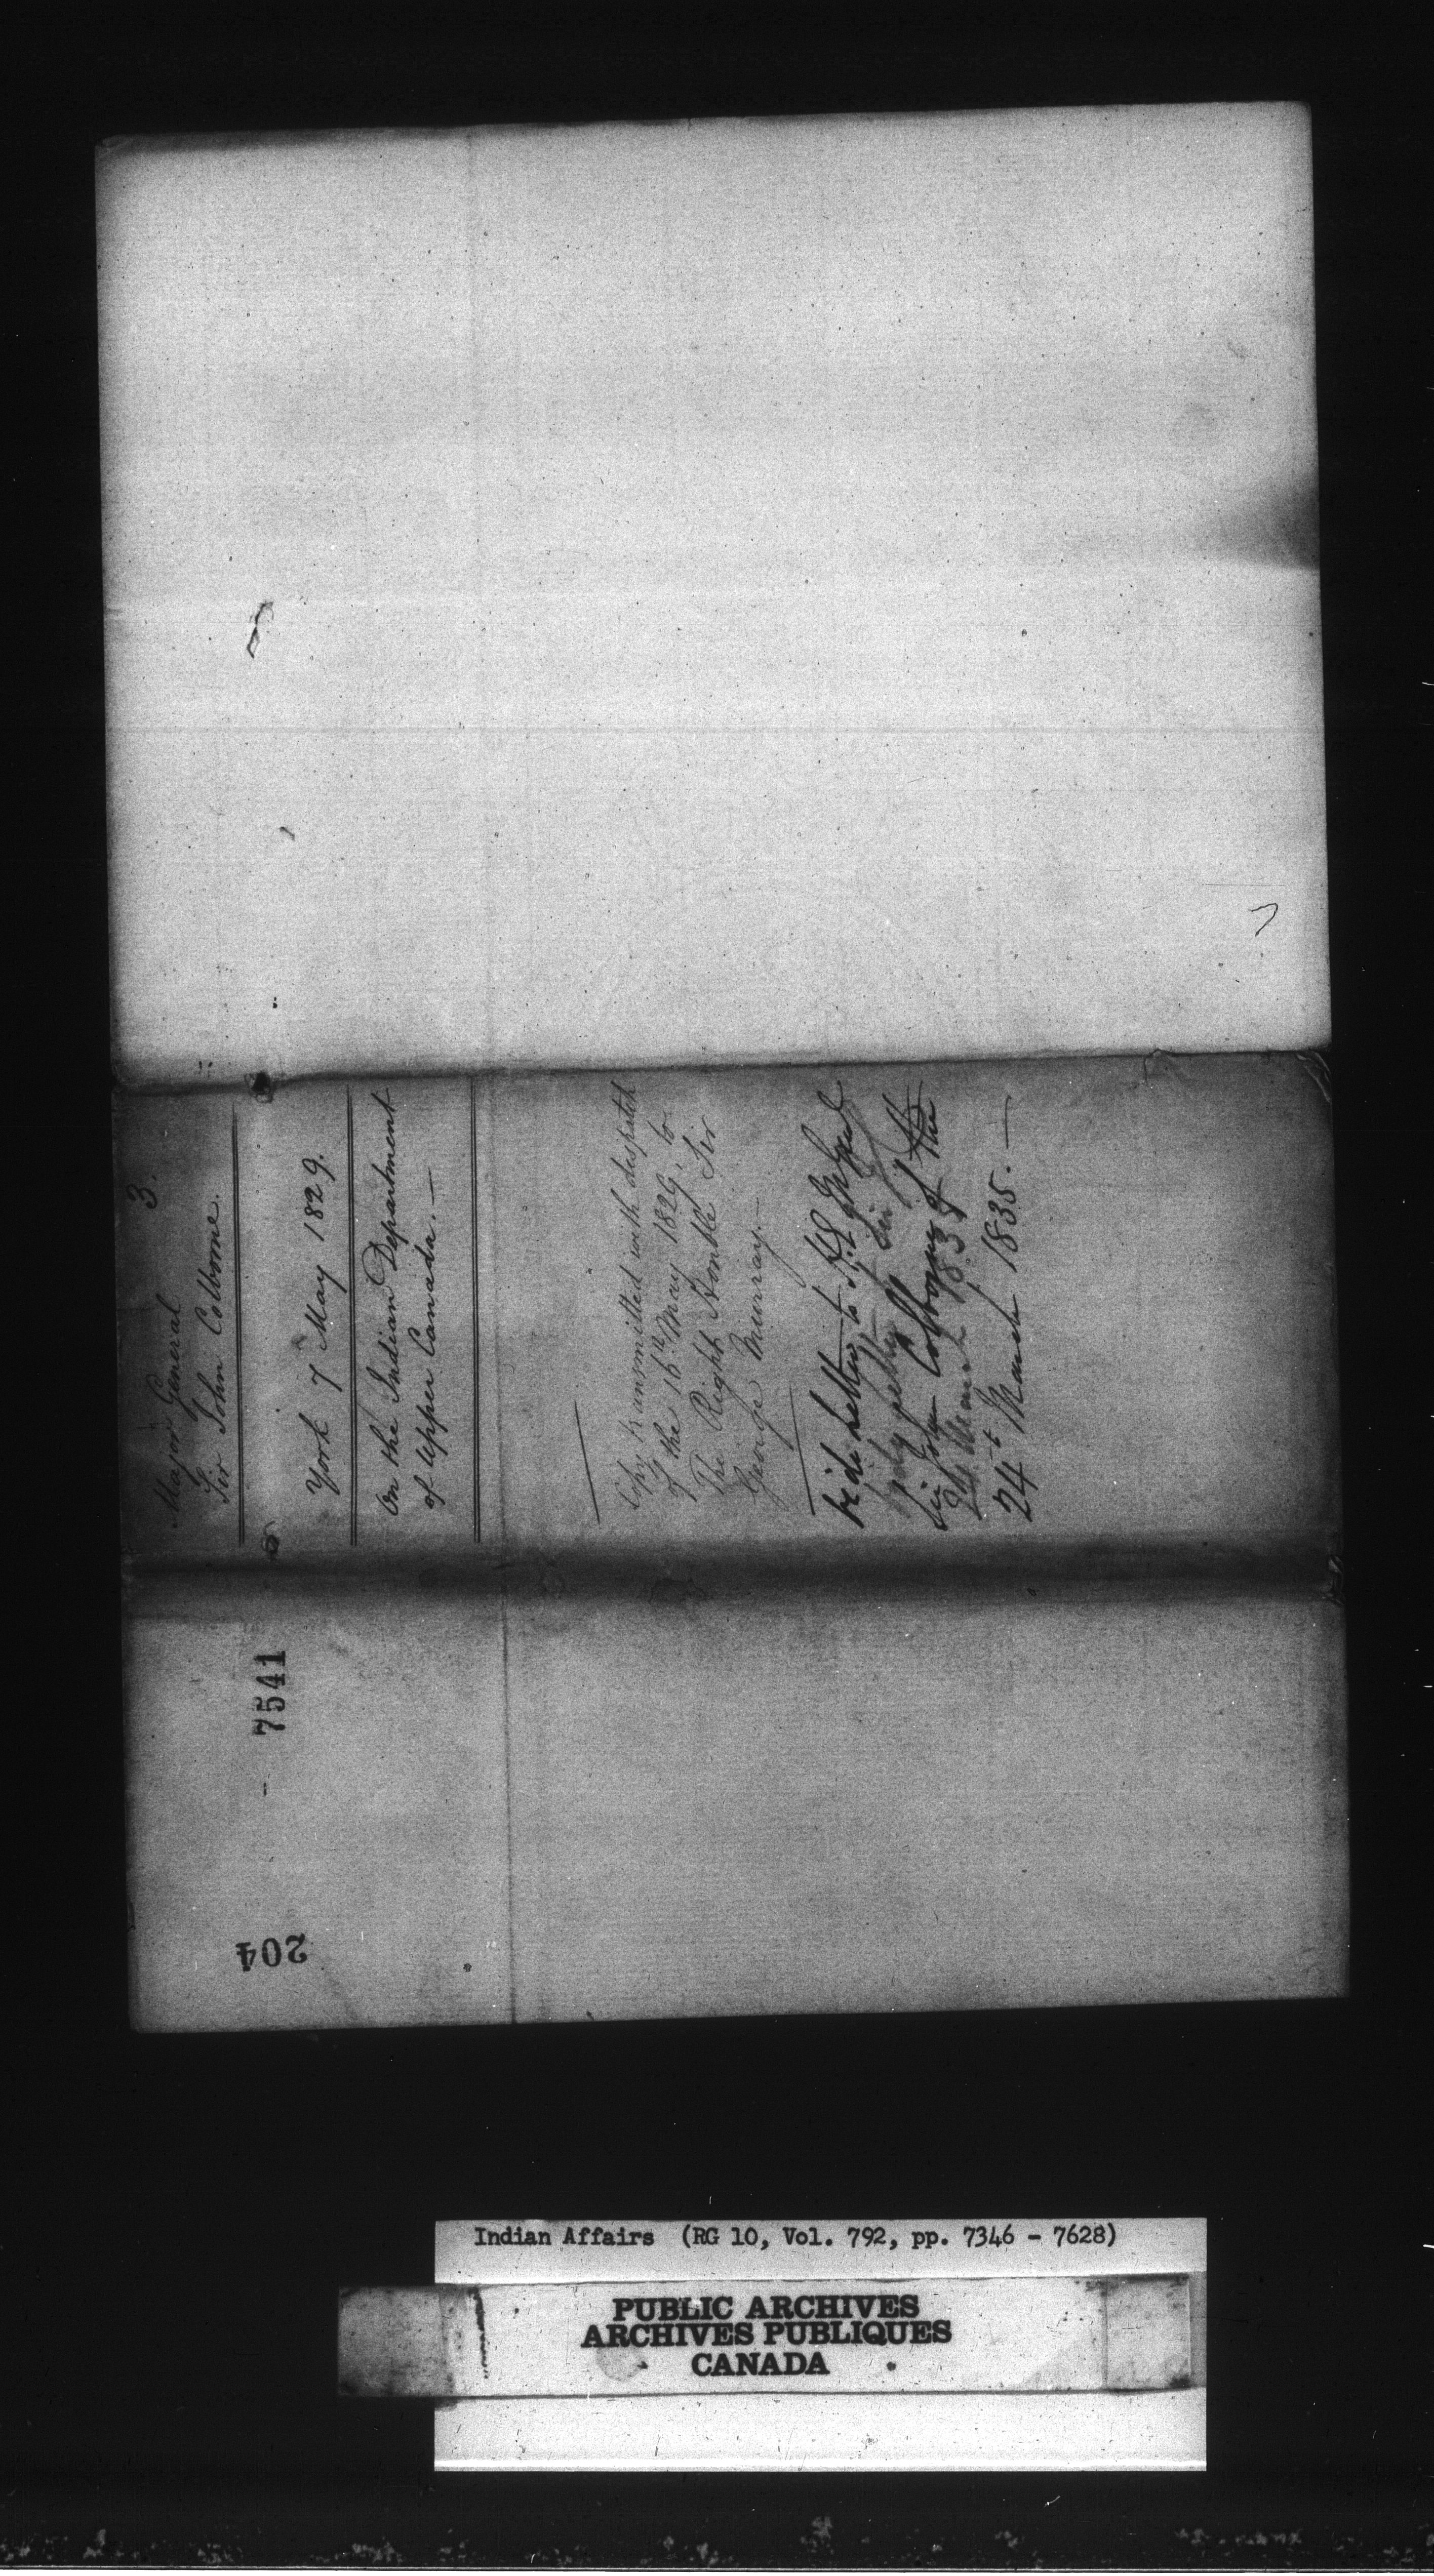 3.
Major General
Sir John Colborne.
York 7 May 1829.
On the Indian Department
of Upper Canada. —
Copy transmitted with dispatch
of the 16th May 1829, to
The Right Honble Sir
George Murray. —
vide letter to
Sir John Colborne of the
24 March 1835
24t March 1835. —
7541
204
Indian Affairs (RG 10, Vol. 792, pp. 7346 - 7628)
PUBLIC ARCHIVES
ARCHIVES PUBLIQUES
CANADA